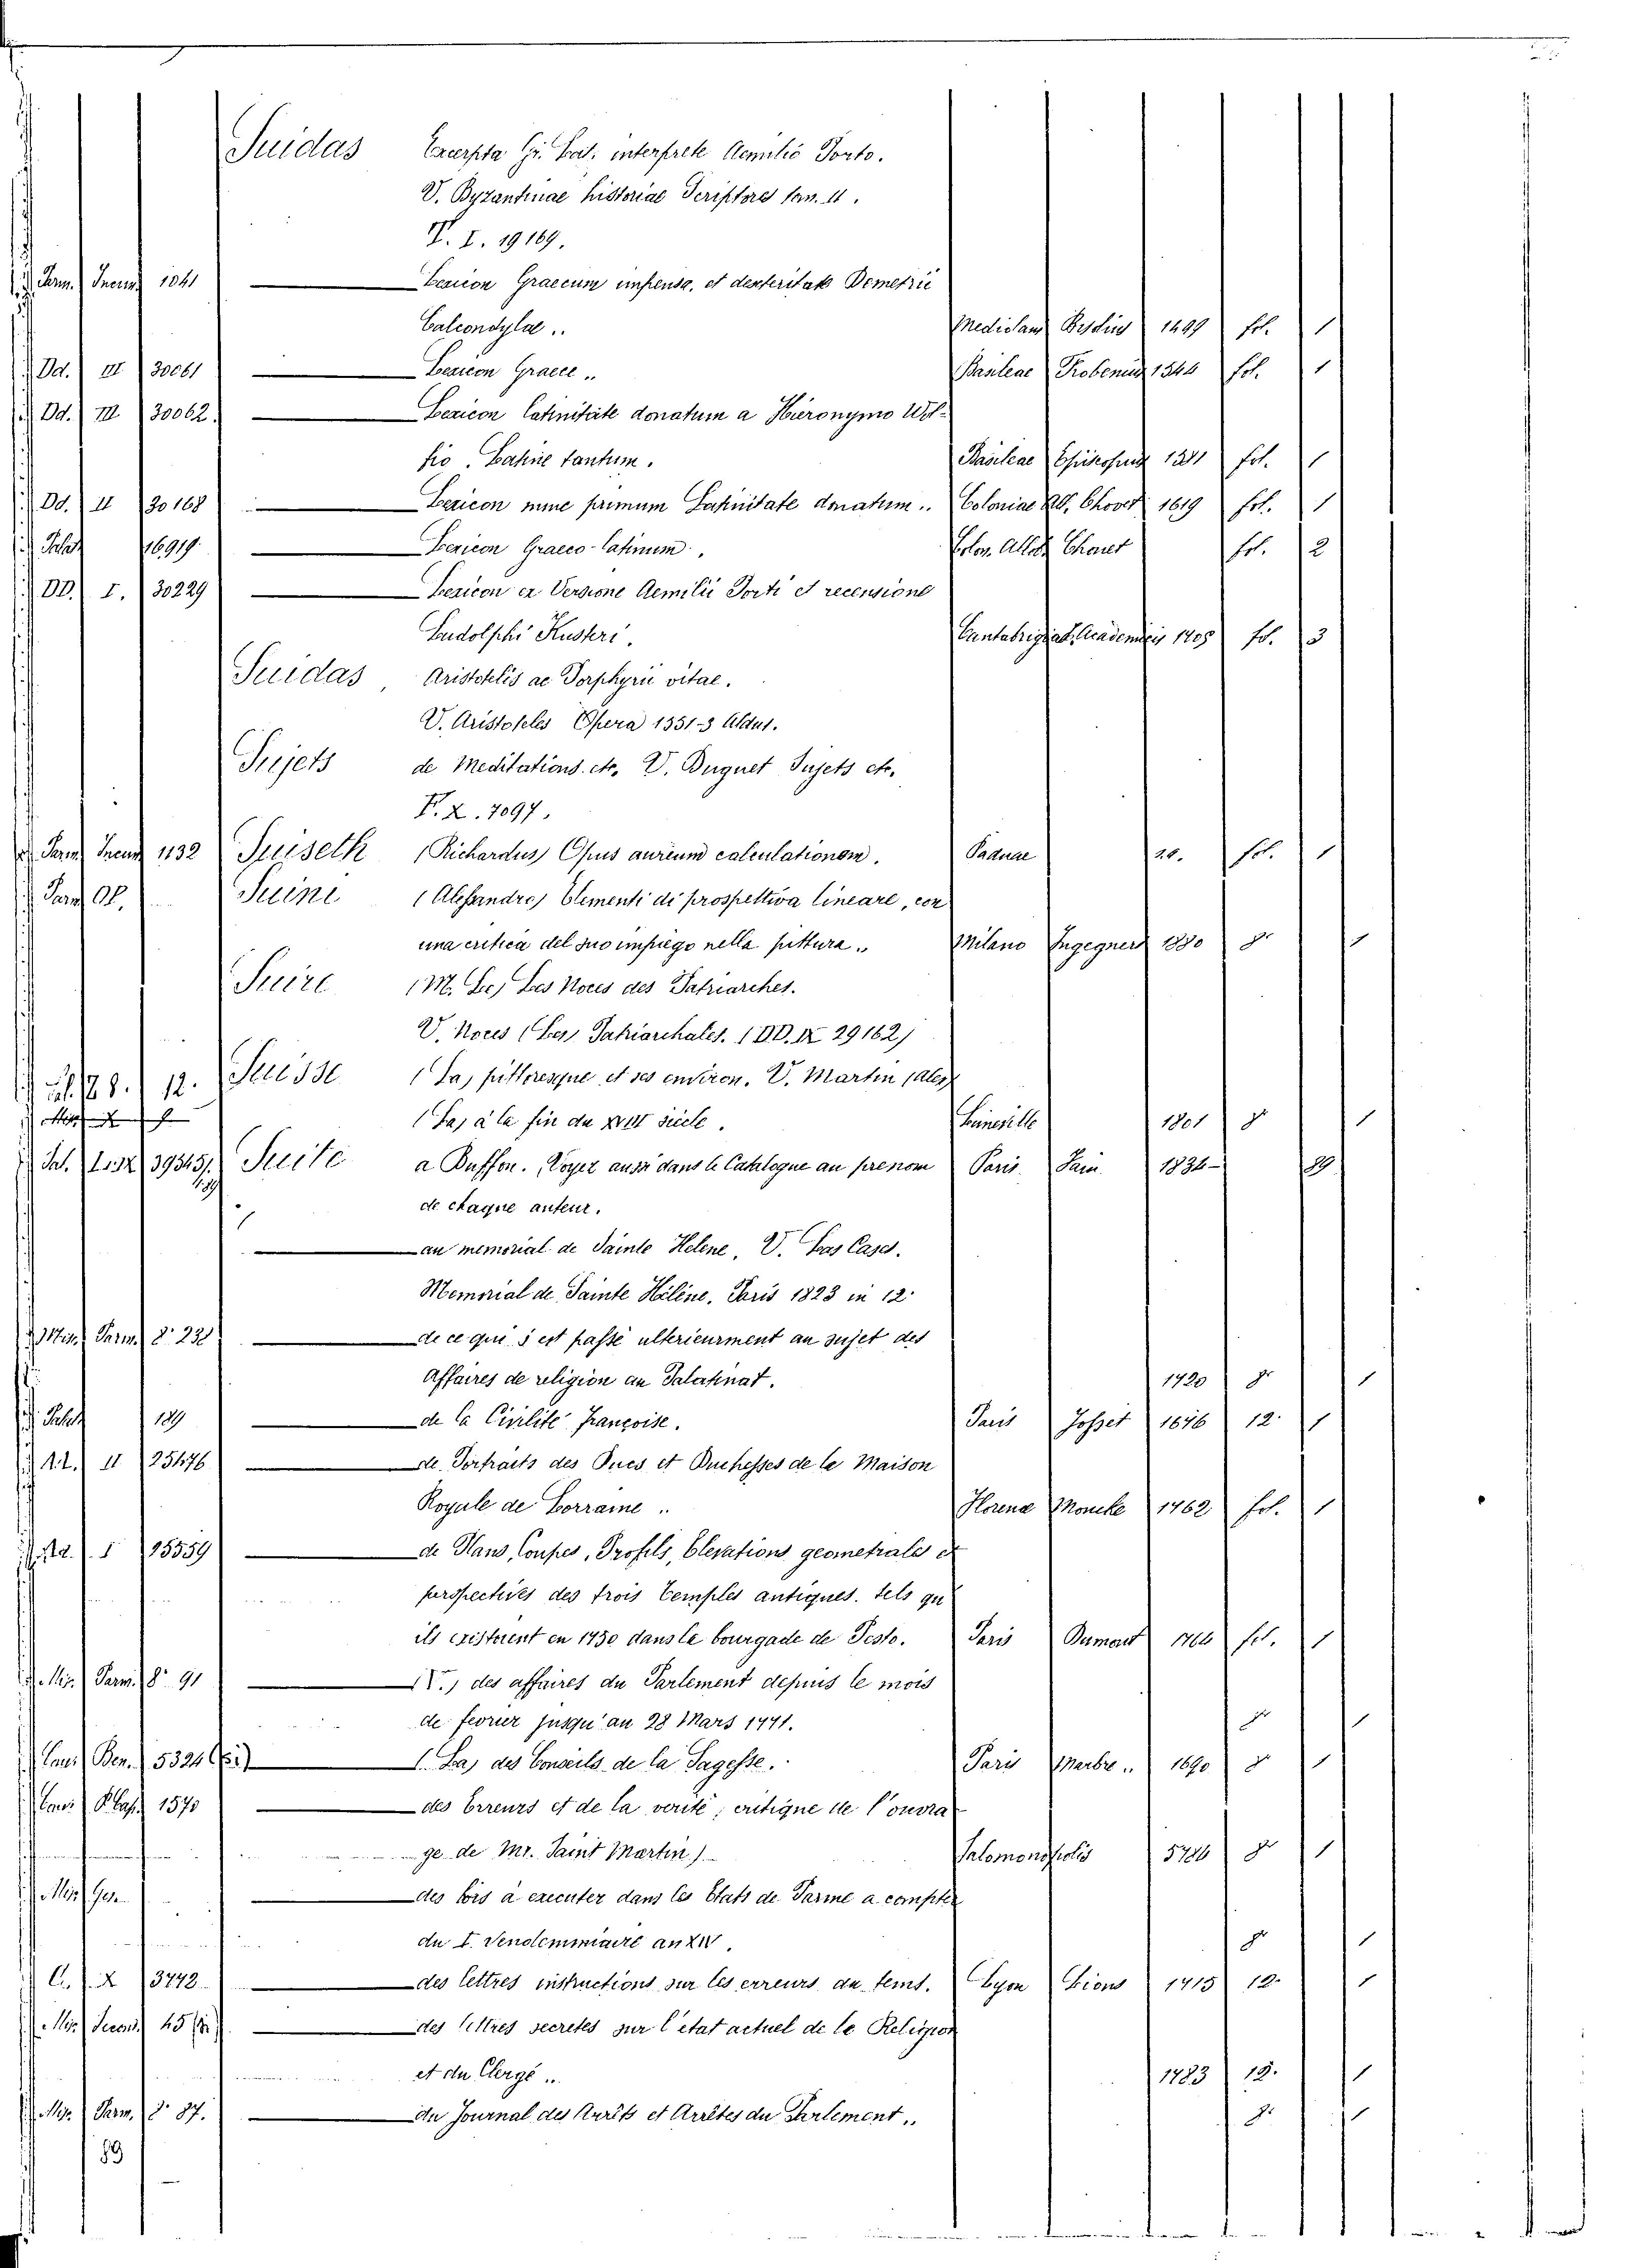 Suidas Excerpta Gr. Lat. interprete Aemilio Porto.
V. Byzantinae historiae Scriptores tom. 11.
V. I. 19169.
Parm. 1041 — Lexicon Graecum impensa, et dexteritate Demetrii
Calcondylae.. 1499 fol. 1
Dd. III 30061 — Lexicon Graece.. Basileae Frobenius 1544 fol. 1
Dd. III 30062. — Lexicon Latinitate donatum a Hieronymo Wol-
fio. Latine tantum. Basileae Episcopius fol. 1
Dd. II 30168 — Lexicon nunc primum Latinitate donatum.. Coloniae All. Chovet 1619 fol. 1
Palat 16919 — Lexicon Graeco-Latinum. Colon. Allob. Chouet fol. 2
DD. I. 30229 — Lexicon ex Versione Aemilii Porti et recensione
Ludolphi Kusteri. Cantabrigiae Academicis 1705 fol. 3
Suidas, Aristotelis ac Porphyrii vitae.
V. Aristoteles Opera 1551-3 Aldus.
Sujets de Meditations. etc. V. Buguet Sujets etc.
F. X. 7097.
Parm 1132 Suiseth (Richardus) Opus aureum calculationem. Paduae fol. 1
Parm Suini (Alessandro) Elementi di prospettiva lineare, con
una critica del suo impiego nella pittura.. Milano Ingegneri 8° 1
Suire (M. Le) Les Noces des Patriarches.
V. Noces (Les) Patriarchales. (DD. IX 29162)
12. Suisse (La) pittoresque et ses environ. V. Martin (Alex)
(La) à la fin du XVIII siecle. 1801 8° 1
Suite a Buffon. Voyez aussi dans le Catalogue au prenom Paris. 1834- 89
de chaque auteur.
— au memorial de Sainte Helene, V. Las Cases.
Memorial de Sainte Hélène. Paris 1823 in 12°
Misc. Parm. 8° — de ce qui s'est passé ulterieurment au sujet des
Affaires de religion au Palatinat. 1720 8° 1
Palat 189 — de la Civilité françoise. Paris Josset 1676 12° 1
II 25476 — de Portraits des Ducs et Duchesses de la Maison
Royale de Lorraine.. Florence Moucke 1762 fol. 1
I 15559 — de Plans, Coupes, Profils, Elevations geometrales et
perspectives des trois Temples antiques. tels qu'
ils existoient en 1750 dans la bourgade de Pesto. Paris Dumont 1764 fol. 1
Mis. Parm. 8° 91 — (N.) des affaires du Parlement depuis le mois
de fevrier jusqu'au 28 Mars 1771. 8° 1
Ben. 5324 — (La) des Conseils de la Sagesse. Paris Marbre.. 1690 8° 1
1570 — des Erreurs et de la verité, critique de l'ouvra
ge de Mr. Saint Martin). Salomonopolis 5784 8° 1
Mis. Gen. — des lois à executer dans les Etats de Parme a compter
du I. Vendemmiaire an XIV. 8° 1
C. X 3742 — des lettres instructions sur les erreurs du tems. Lyon Lions 1715 12° 1
Mis. Second. 45 — des lettres secretes sur l'etat actuel de la Religion
et du Clergé.. 1783 12. 1
Mis. Parm. 8° 87. — du Journal des Arrêts et Arrêtes du Parlement.. 8° 1
89